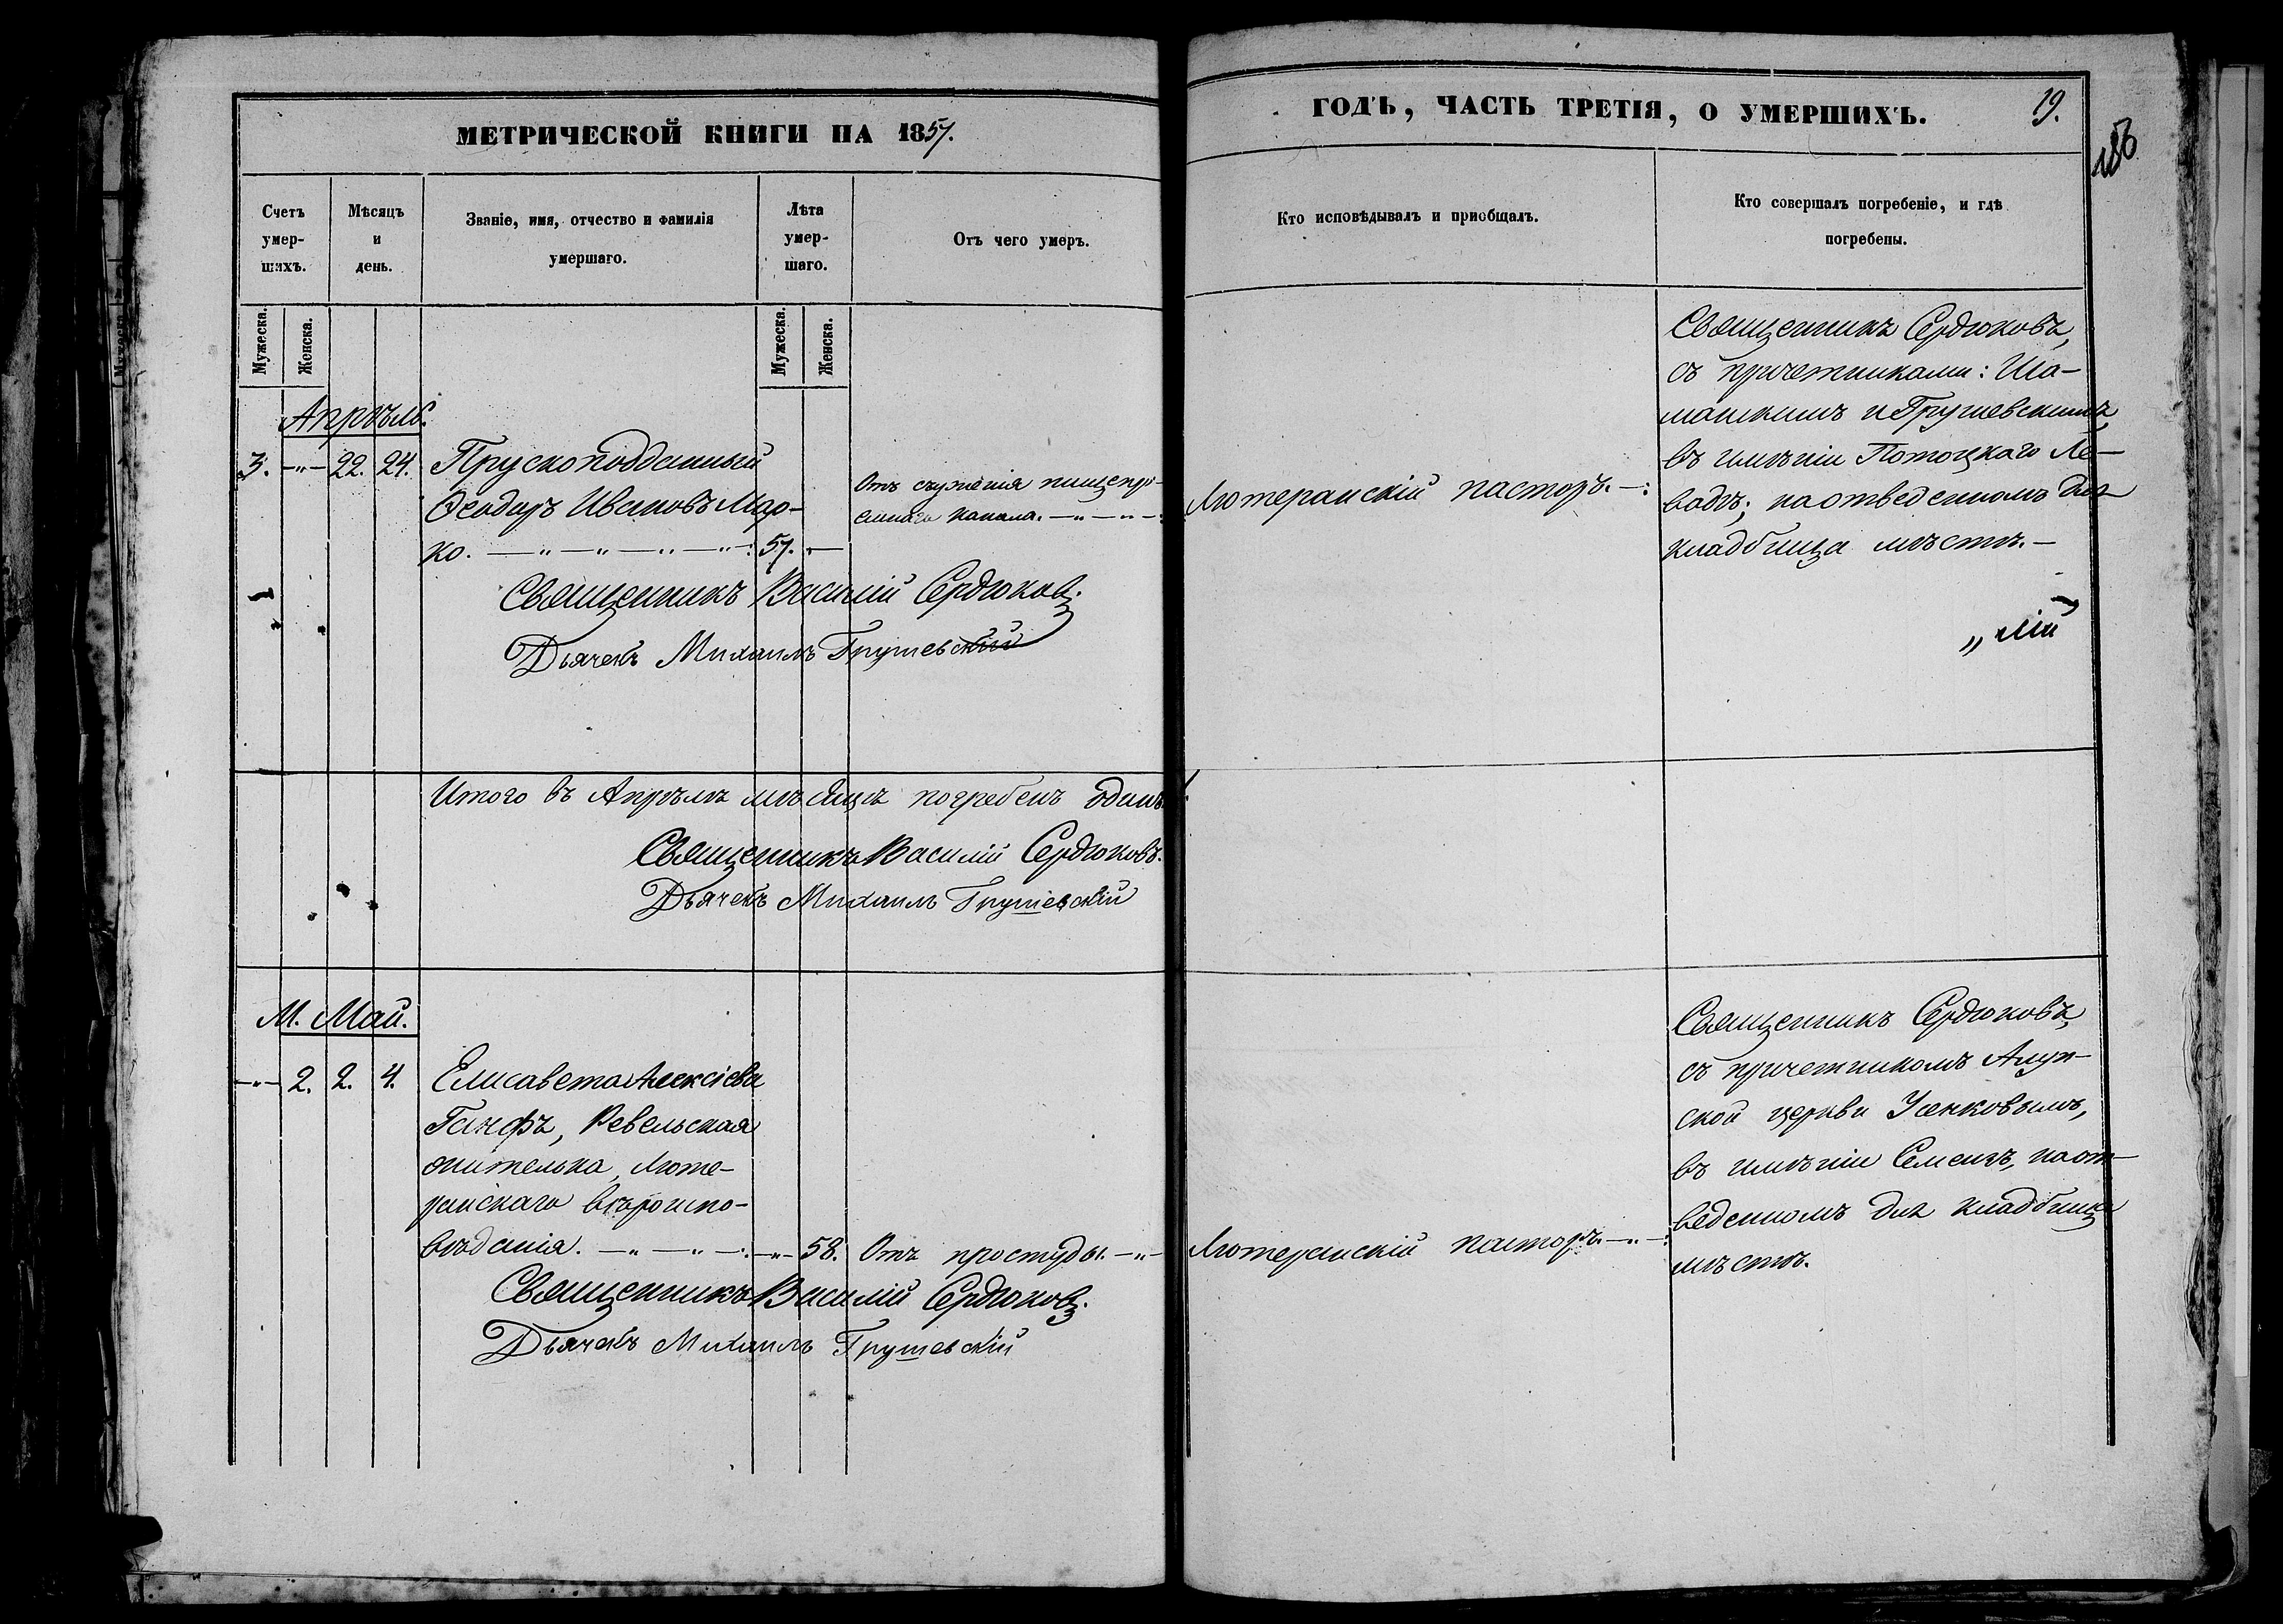 МЕТРИЧЕСКОЙ КНИГИ НА 1857.
Счетъ умер-шихъ.
Мѣсяцъ и день.
Званіе, имя, отчество и фамилія умершаго.
Лѣта умер-шаго.
Отъ чего умеръ.
Мужеска.
Женска.
Мужеска.
Женска.
Апрѣль.
3. —"— 22. 24. Прускоподданный
Ѳеодоръ Ивановъ Мар-
ко. —"—"—"—"—: 57. —
Отъ съуженія пищепрі-
емнаго канала. —"—"—:
Священникъ Василій Сердюковъ.
Дьячекъ Михаилъ Грушевскій
Итого въ Апрѣлѣ мѣсяцѣ погребенъ одинъ.
Священникъ Василій Сердюковъ.
Дьячекъ Михаилъ Грушевскій
М. Май.
—"— 2. 2. 4. Елисавета Алексіева
Ганфъ, Ревельская
жителька, Люте-
ранскаго вѣроиспо-
вѣданія. —"—"—:—"— 58. Отъ простуды. —"—
Священникъ Василій Сердюковъ.
Дьячекъ Михаилъ Грушевскій
ГОДЪ, ЧАСТЬ ТРЕТІЯ, О УМЕРШИХЪ.
19.
Кто исповѣдывалъ и пріобщалъ.
Кто совершалъ погребеніе, и гдѣ погребены.
Лютеранскій пасторъ. —:
Священникъ Сердюковъ,
съ причетниками: Ша-
манскимъ и Грушевскимъ,
въ имѣніи Потоцкаго Ле-
вадѣ; на отведенномъ для
кладбища мѣстѣ. —
Лютеранскій пасторъ. —"—:
Священникъ Сердюковъ,
съ причетникомъ Алуп-
ской церкви Усенковымъ,
въ имѣніи Семеизъ, на от-
веденномъ для кладбища
мѣстѣ.